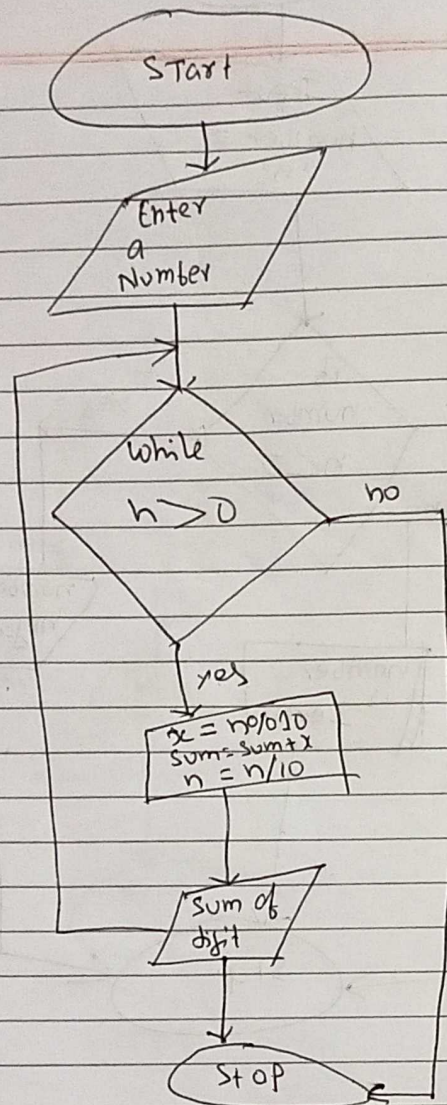 Start
Enter
a
Number
while
n>0
no
yes
x = n%10
sum=sum+x
n = n/10
sum of
digit
Stop